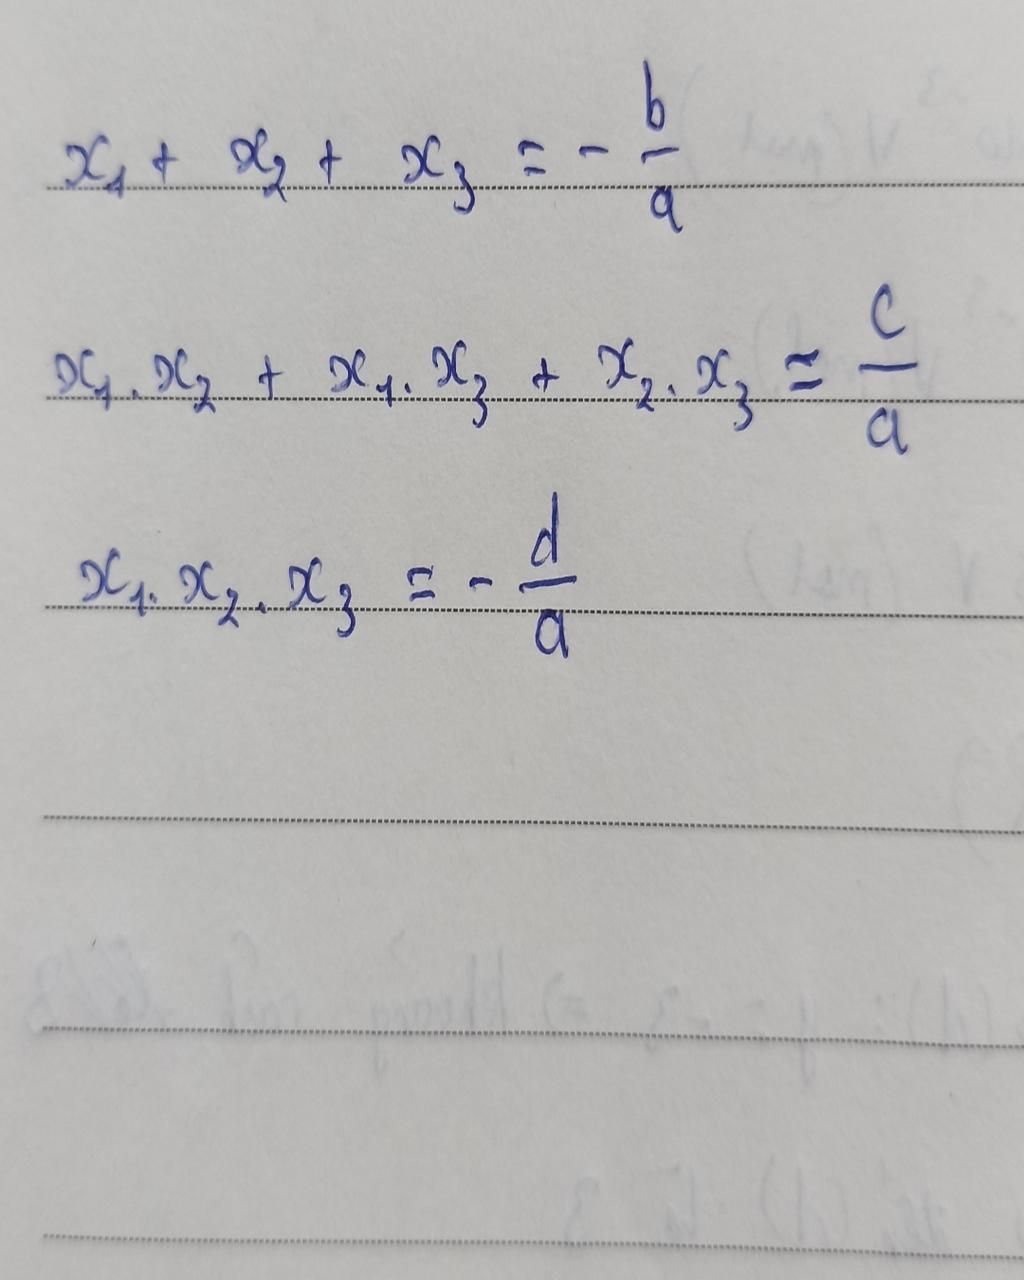 x₁ + x₂ + x₃ = - b/a
x₁.x₂ + x₁.x₃ + x₂.x₃ = c/a
x₁.x₂.x₃ = - d/a